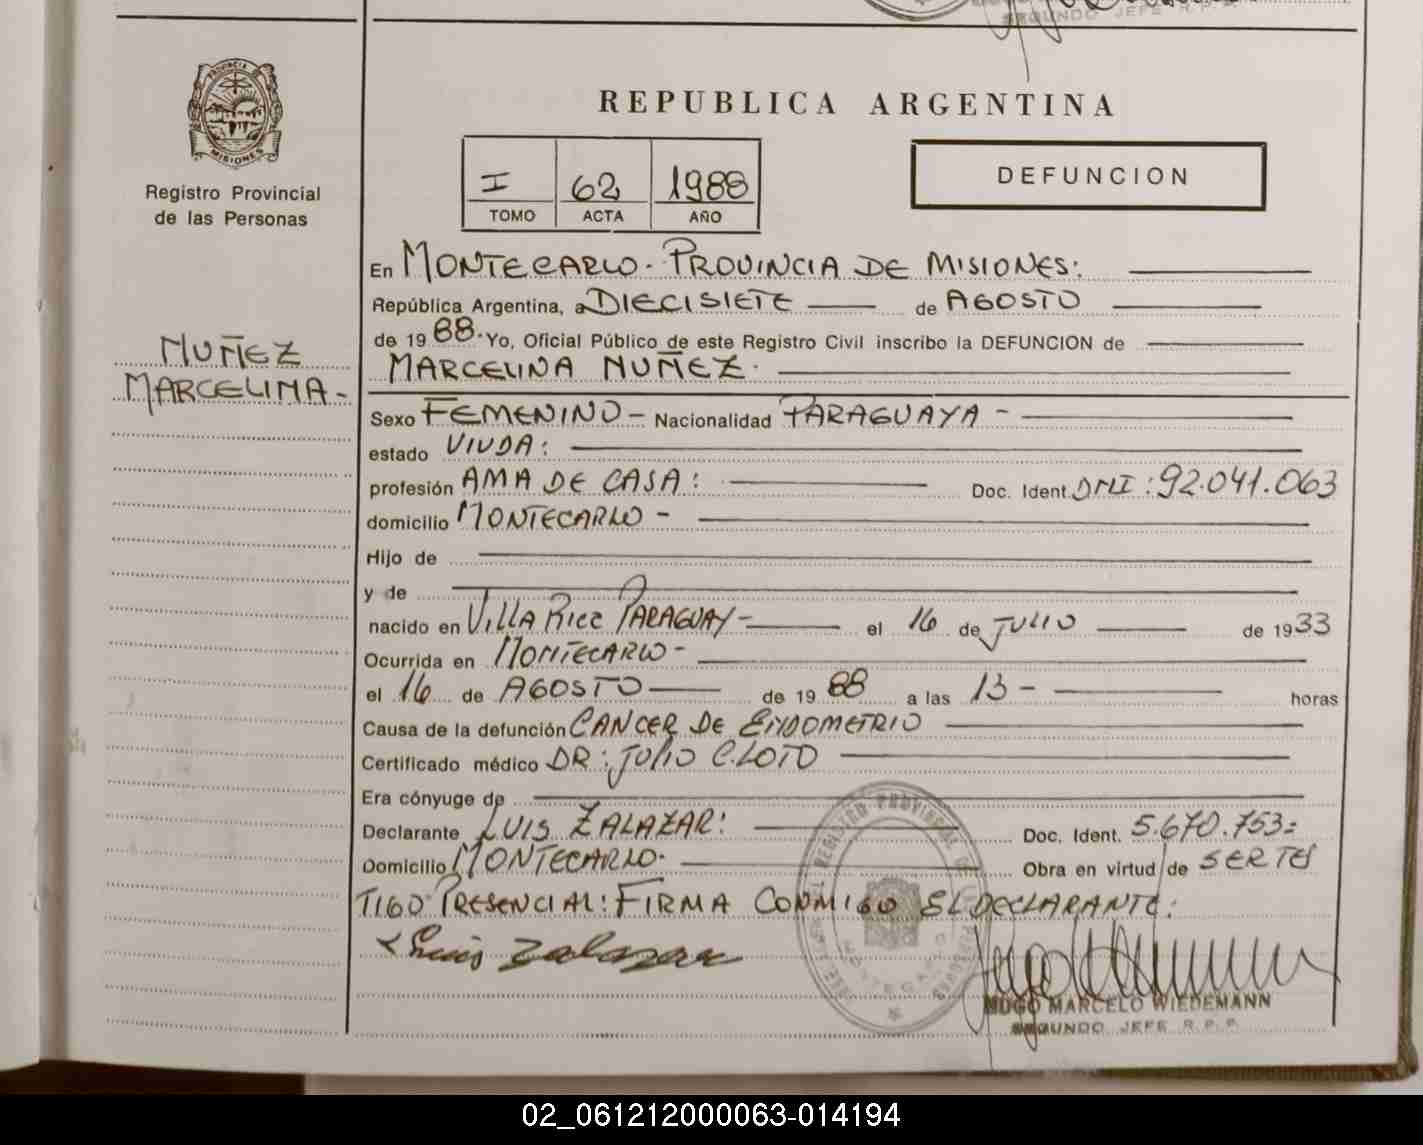 SEGUNDO JEFE R.P.P.
PROVINCIA
MISIONES
Registro Provincial
de las Personas
NUÑEZ
MARCELINA -
REPUBLICA ARGENTINA
I 62 1988
TOMO ACTA AÑO
DEFUNCION
En MONTECARLO - PROVINCIA DE MISIONES:
República Argentina, a DIECISIETE de AGOSTO
de 1988 Yo, Oficial Público de este Registro Civil inscribo la DEFUNCION de
MARCELINA NUÑEZ.
Sexo FEMENINO - Nacionalidad PARAGUAYA -
estado VIUDA:
profesión AMA DE CASA: Doc. Ident. DNI: 92.041.063
domicilio MONTECARLO -
Hijo de
y de
nacido en VILLA RICA PARAGUAY - el 16 de JULIO de 1933
Ocurrida en MONTECARLO -
el 16 de AGOSTO de 1988 a las 13 - horas
Causa de la defunción CANCER DE ENDOMETRIO
Certificado médico DR: JULIO C. LOTO
Era cónyuge de
Declarante LUIS ZALAZAR: Doc. Ident. 5.670.753=
Domicilio MONTECARLO. Obra en virtud de SER TES
TIGO PRESENCIAL: FIRMA CONMIGO EL DECLARANTE:
Luis Zalazar
REGISTRO PROVINCIAL DE LAS PERSONAS
MONTECARLO
HUGO MARCELO WIEDEMANN
SEGUNDO JEFE R.P.P.
02_061212000063-014194